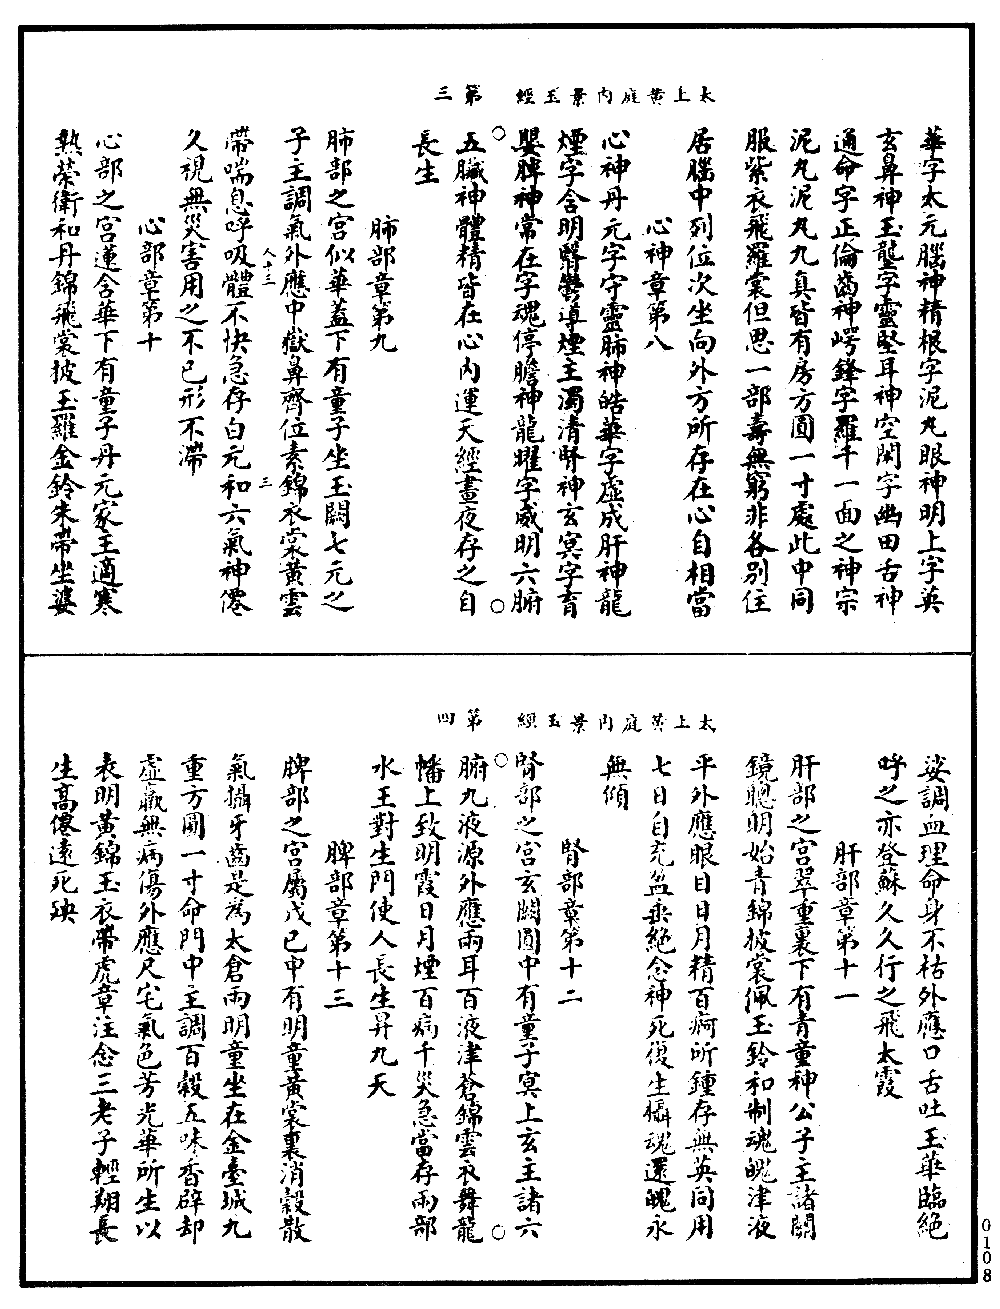 太上黃庭內景玉經　第三
華字太元腦神精根字泥丸眼神明上字英
玄鼻神玉壟字靈堅耳神空閑字幽田舌神
通命字正倫齒神崿鋒字羅千一面之神宗
泥丸泥丸九真皆有房方圓一寸處此中同
服紫衣飛羅裳但思一部壽無窮非各別住
居腦中列位次坐向外方所存在心自相當
心神章第八
心神丹元字守靈肺神皓華字虛成肝神龍
煙字含明翳鬱導煙主濁清腎神玄冥字育
嬰脾神常在字魂停膽神龍曜字威明六腑
五臟神體精皆在心內運天經晝夜存之自
長生
肺部章第九
肺部之宮似華蓋下有童子坐玉闕七元之
子主調氣外應中嶽鼻齊位素錦衣裳黃雲
人十三　三
帶喘息呼吸體不快急存白元和六氣神僊
久視無災害用之不已形不滯
心部章第十
心部之宮蓮含華下有童子丹元家主適寒
熱榮衛和丹錦飛裳披玉羅金鈴朱帶坐婆
太上黃庭內景玉經　第四
娑調血理命身不枯外應口舌吐玉華臨絕
呼之亦登蘇久久行之飛太霞
肝部章第十一
肝部之宮翠重裏下有青童神公子主諸關
鏡聰明始青錦披裳佩玉鈴和制魂魄津液
平外應眼目日月精百痾所鍾存無英同用
七日自充盈垂絕念神死復生攝魂還魄永
無傾
腎部章第十二
腎部之宮玄闕圓中有童子冥上玄主諸六
腑九液源外應兩耳百液津蒼錦雲衣舞龍
幡上致明霞日月煙百病千災急當存兩部
水王對生門使人長生昇九天
脾部章第十三
脾部之宮屬戊己中有明童黃裳裏消穀散
氣攝牙齒是為太倉兩明童坐在金臺城九
重方圓一寸命門中主調百穀五味香辟却
虛羸無病傷外應尺宅氣色芳光華所生以
表明黃錦玉衣帶虎章注念三老子輕翔長
生高僊遠死殃
0108